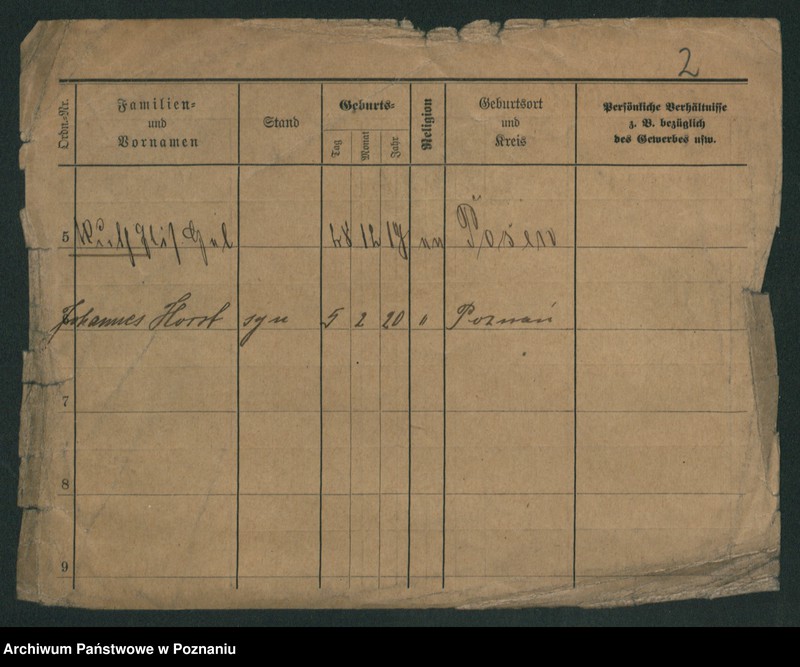 2
Ordn.-Nr.
Familien-
und
Vornamen
Stand
Geburts-
Tag
Monat
Jahr
Religion
Geburtsort
und
Kreis
Persönliche Verhältnisse
z. B. bezüglich
des Gewerbes usw.
5 12 Posen
Johannes Horst syn 5 2 20 " Poznań
7
8
9
Archiwum Państwowe w Poznaniu